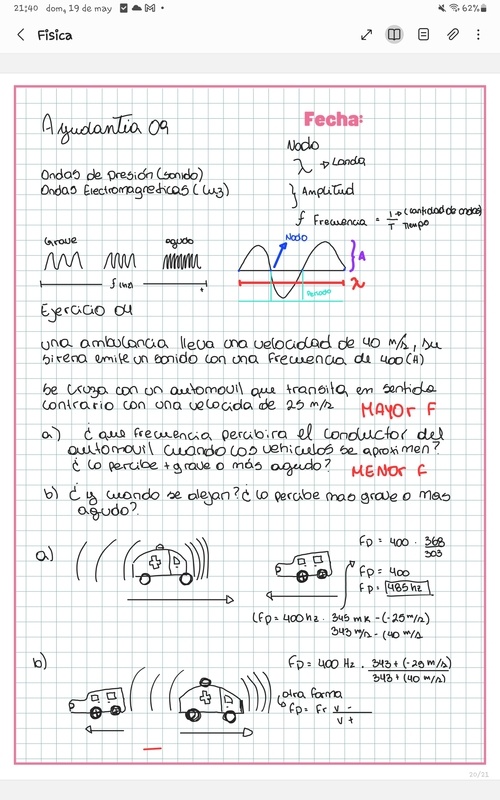 21:40 dom, 19 de may
62%
Fisica
Ayudantia 09
Fecha:
Nodo
λ → Landa
} Amplitud
f Frecuencia = 1/T → (cantidad de ondas) Tiempo
Ondas de Presión (sonido)
Ondas Electromagneticas (luz)
Grave
agudo
f (Hz)
+
Nodo
A
λ
Periodo
Ejercicio 04
una ambulancia lleva una velocidad de 40 m/s, su
sirena emite un sonido con una frecuencia de 400 (A)
Se cruza con un automovil que transita en sentido
contrario con una velocida de 25 m/s
MAYOR F
a) ¿ que frecuencia percibira el conductor del
automovil cuando los vehiculos se aproximen?
¿ lo percibe + grave o más agudo?
MENOR F
b) ¿ y cuando se alejan? ¿ lo percibe mas grave o mas
agudo?
a)
Fp = 400 · 368/303
Fp = 400
Fp = 485 hz
(Fp = 400 hz · 345 mk - (-25 m/s)
343 m/s - (40 m/s
b)
Fp = 400 Hz · 343 + (-25 m/s)
343 + (40 m/s)
(otra forma
Fp = Fr v -
v +
20/21